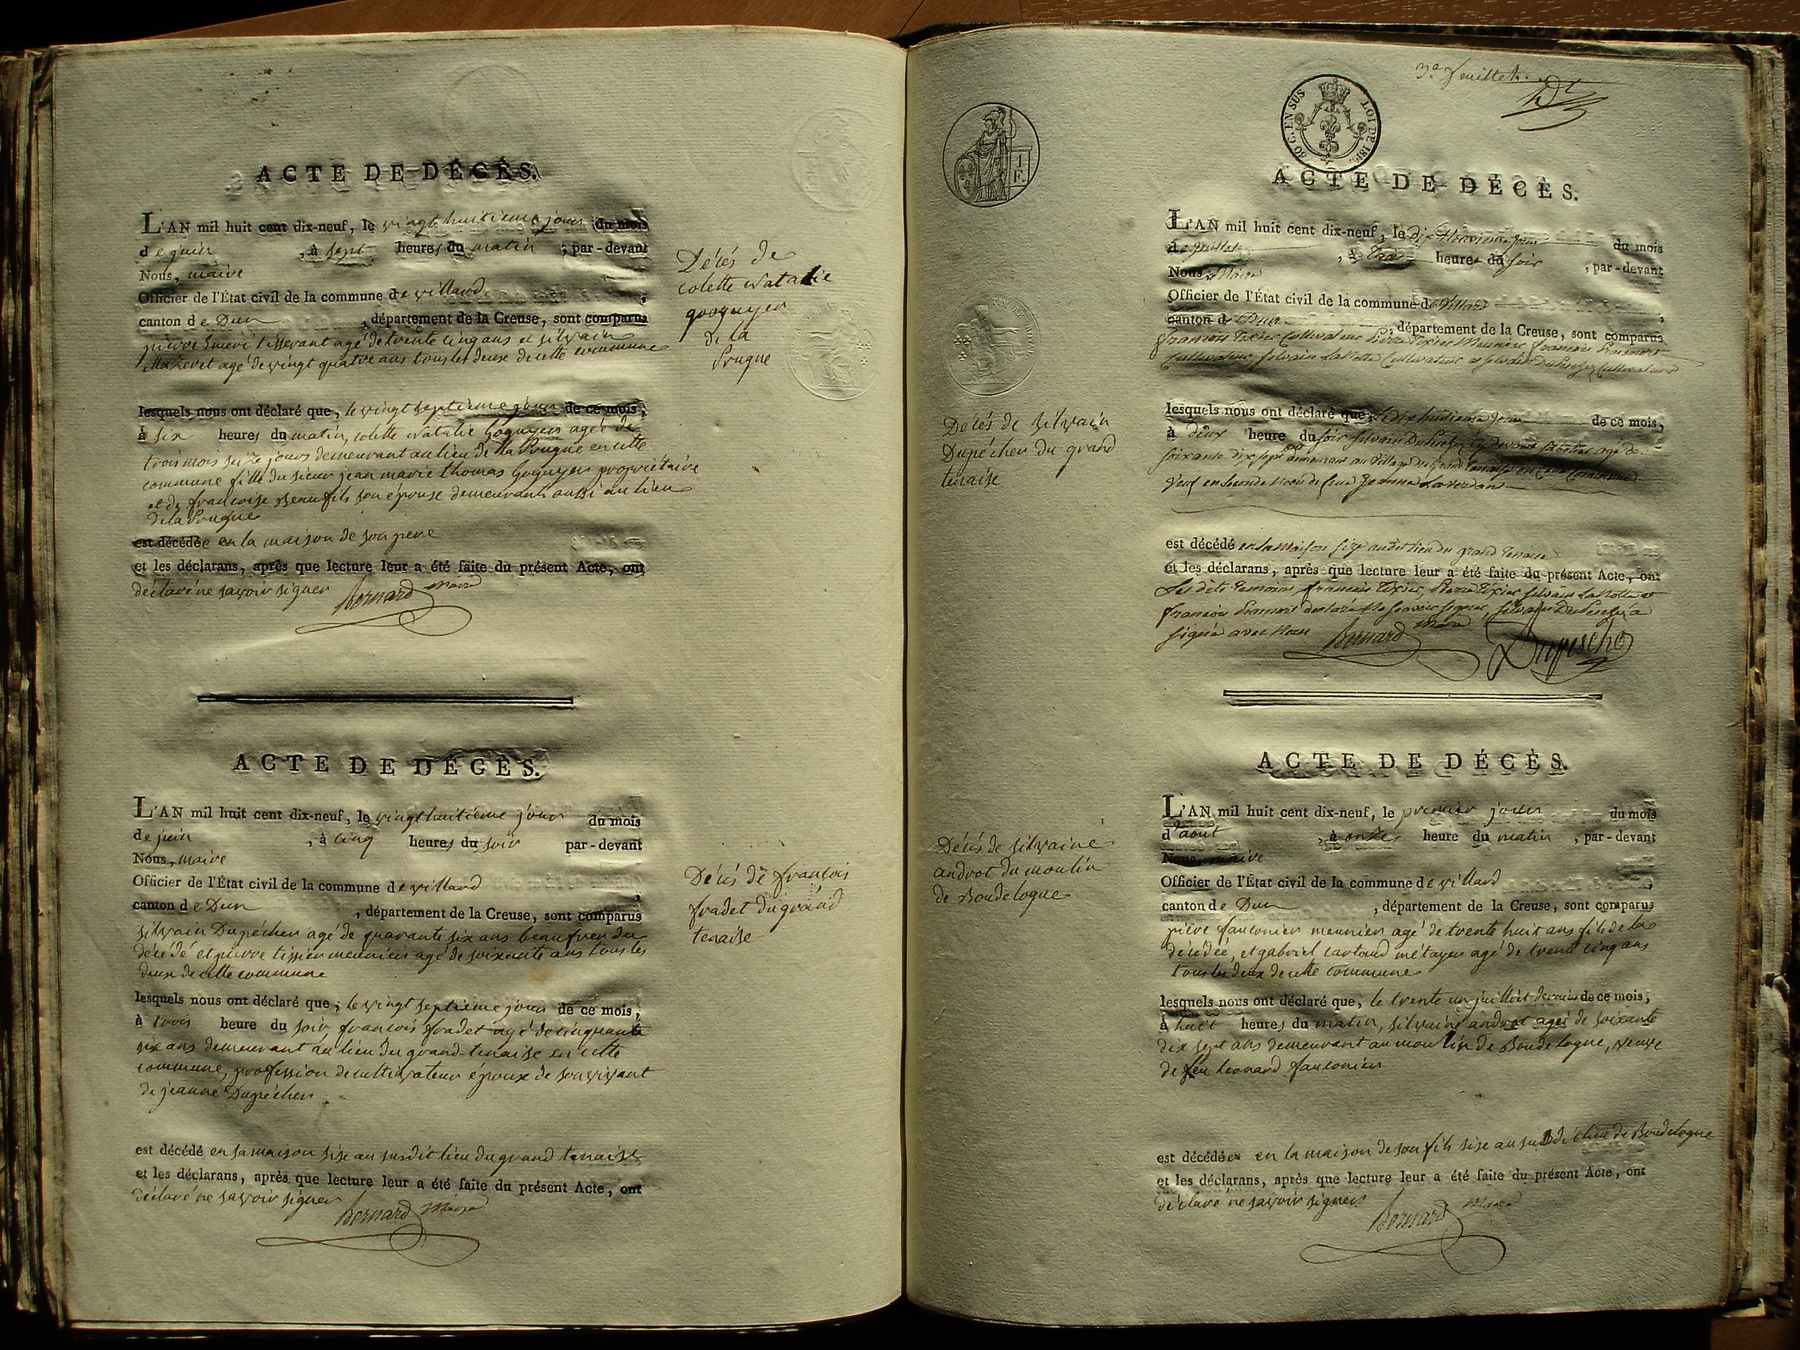 ACTE DE DÉCÈS.
L'AN mil huit cent dix-neuf, le vingt huitieme jour du mois
de juin, à sept heures du matin, par-devant
Nous, maire
Officier de l'État civil de la commune de villard
canton de Dun, département de la Creuse, sont comparus
pierre tisserant agé de trente cinq ans et silvain
agé de vingt quatre ans tous les deux de cette commune
lesquels nous ont déclaré que, le vingt septieme jour de ce mois,
à six heures du matin, colette natalie goguyer agée de
trois mois seize jours demeurant au lieu de la Pougue en cette
commune fille du sieur jean marie thomas goguyer propriétaire
et de francoise son épouse demeurant aussi au lieu
de la Pougue
est décédée en la maison de son pere
et les déclarans, après que lecture leur a été faite du présent Acte, ont
déclaré ne savoir signer Bernard maire
Décés de
colette natalie
goguyer
de la
Pougue
ACTE DE DÉCÈS.
L'AN mil huit cent dix-neuf, le vingt huitieme jour du mois
de juin, à cinq heures du soir par-devant
Nous, maire
Officier de l'État civil de la commune de villard
canton de Dun, département de la Creuse, sont comparus
silvain Dupécher agé de quarante six ans beaufrere du
décédé et pierre tixier meunier agé de soixante ans tous les
deux de cette commune
lesquels nous ont déclaré que, le vingt septieme jour de ce mois,
à trois heure du soir, francois fradet agé de cinquante
six ans demeurant au lieu du grand tenaise en cette
commune, profession de cultivateur époux de son vivant
de jeanne Dupécher
est décédé en sa maison sise au susdit lieu du grand tenaise
et les déclarans, après que lecture leur a été faite du présent Acte, ont
déclaré ne savoir signer Bernard Maire
Décés de francois
fradet du grand
tenaise
3e feuillet.
EN SUS LOI DE
1 F.
ACTE DE DÉCÈS.
L'AN mil huit cent dix-neuf, le dix jour du mois
de juillet, à trois heures du soir, par-devant
Nous, Maire
Officier de l'État civil de la commune de Villard,
canton de Dun, département de la Creuse, sont comparus
francois Tixier Cultivateur Pierre Tixier Meunier francois
Cultivateur, silvain Cultivateur et silvain Dupecher Cultivateur
lesquels nous ont déclaré que, le dix huitieme jour de ce mois,
à deux heure du soir silvain Dupecher agé de
soixante dix sept ans au village du grand tenaise en cette commune
Veuf en seconde noces de feue Jeanne
est décédé en sa Maison size audit lieu du grand tenaise
et les déclarans, après que lecture leur a été faite du présent Acte, ont
Les dits temoins francois Tixier, Pierre Tixier silvain et
francois declaré Ne scavoir signer, silvain Dupecher a
signé avec Nous Bernard maire Dupecher
Décés de silvain
Dupécher du grand
tenaise
ACTE DE DÉCÈS.
L'AN mil huit cent dix-neuf, le premier jour du mois
d'aout, à onze heure du matin, par-devant
Nous, maire
Officier de l'État civil de la commune de villard
canton de Dun, département de la Creuse, sont comparus
pierre fauconier meunier agé de trente huit ans fils de la
décédée, et gabriel métayer agé de trente cinq ans
tous les deux de cette commune
lesquels nous ont déclaré que, le trente un juillet dernier de ce mois,
à huit heures du matin, silvaine androt agée de soixante
dix sept ans demeurant au moulin de Boudelogue, veuve
de feu leonard fauconier
est décédée en la maison de son fils sise au susdit lieu de Boudelogue
et les déclarans, après que lecture leur a été faite du présent Acte, ont
déclaré ne savoir signer Bernard maire
Décés de silvaine
androt du moulin
de Boudelogue